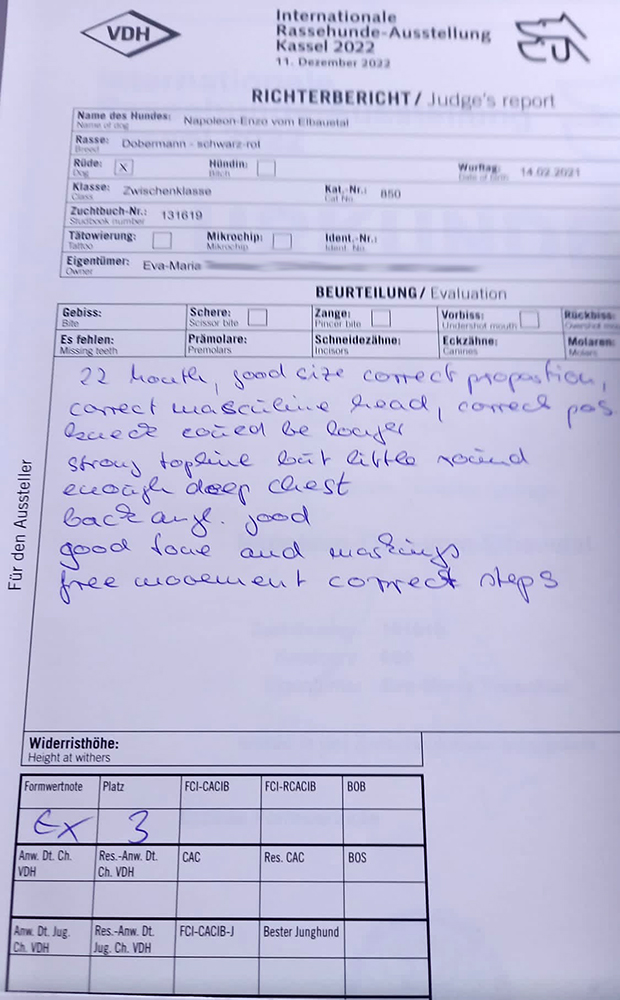 VDH
Internationale
Rassehunde-Ausstellung
Kassel 2022
11. Dezember 2022
RICHTERBERICHT/ Judge's report
Name des Hundes: Napoleon-Enzo vom Elbauetal
Name of dog
Rasse: Dobermann - schwarz-rot
Breed
Rüde: X Hündin: Wurftag: 14.02.2021
Dog Bitch Date of Birth
Klasse: Zwischenklasse Kat.-Nr.: 850
Class Cat No.
Zuchtbuch-Nr.: 131619
Studbook number
Tätowierung: Mikrochip: Ident.-Nr.:
Tattoo Mikrochip Ident. No.
Eigentümer: Eva-Maria
Owner
BEURTEILUNG/ Evaluation
Gebiss: Schere: Zange: Vorbiss: Rückbiss:
Bite Scissor bite Pincer bite Undershot mouth Overshot
Es fehlen: Prämolare: Schneidezähne: Eckzähne: Molaren:
Missing teeth Premolars Incisors Canines Molars
22 month, good size correct proportion,
correct masculine head, correct pos
could be longer
strong topline but little round
enough deep chest
back angl. good
good tone and markings
free movement correct steps
Für den Aussteller
Widerristhöhe:
Height at withers
Formwertnote Platz FCI-CACIB FCI-RCACIB BOB
Ex 3
Anw. Dt. Ch. Res.-Anw. Dt. CAC Res. CAC BOS
VDH Ch. VDH
Anw. Dt. Jug. Res.-Anw. Dt. FCI-CACIB-J Bester Junghund
Ch. VDH Jug. Ch. VDH